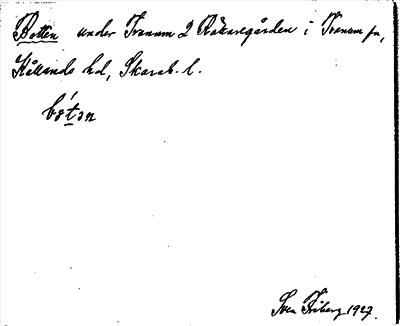 Botten under Tranum 2 Råkasegården i Tranum sn,
Kållands hd, Skarab. l.
bótən
Sven Friberg 1927.